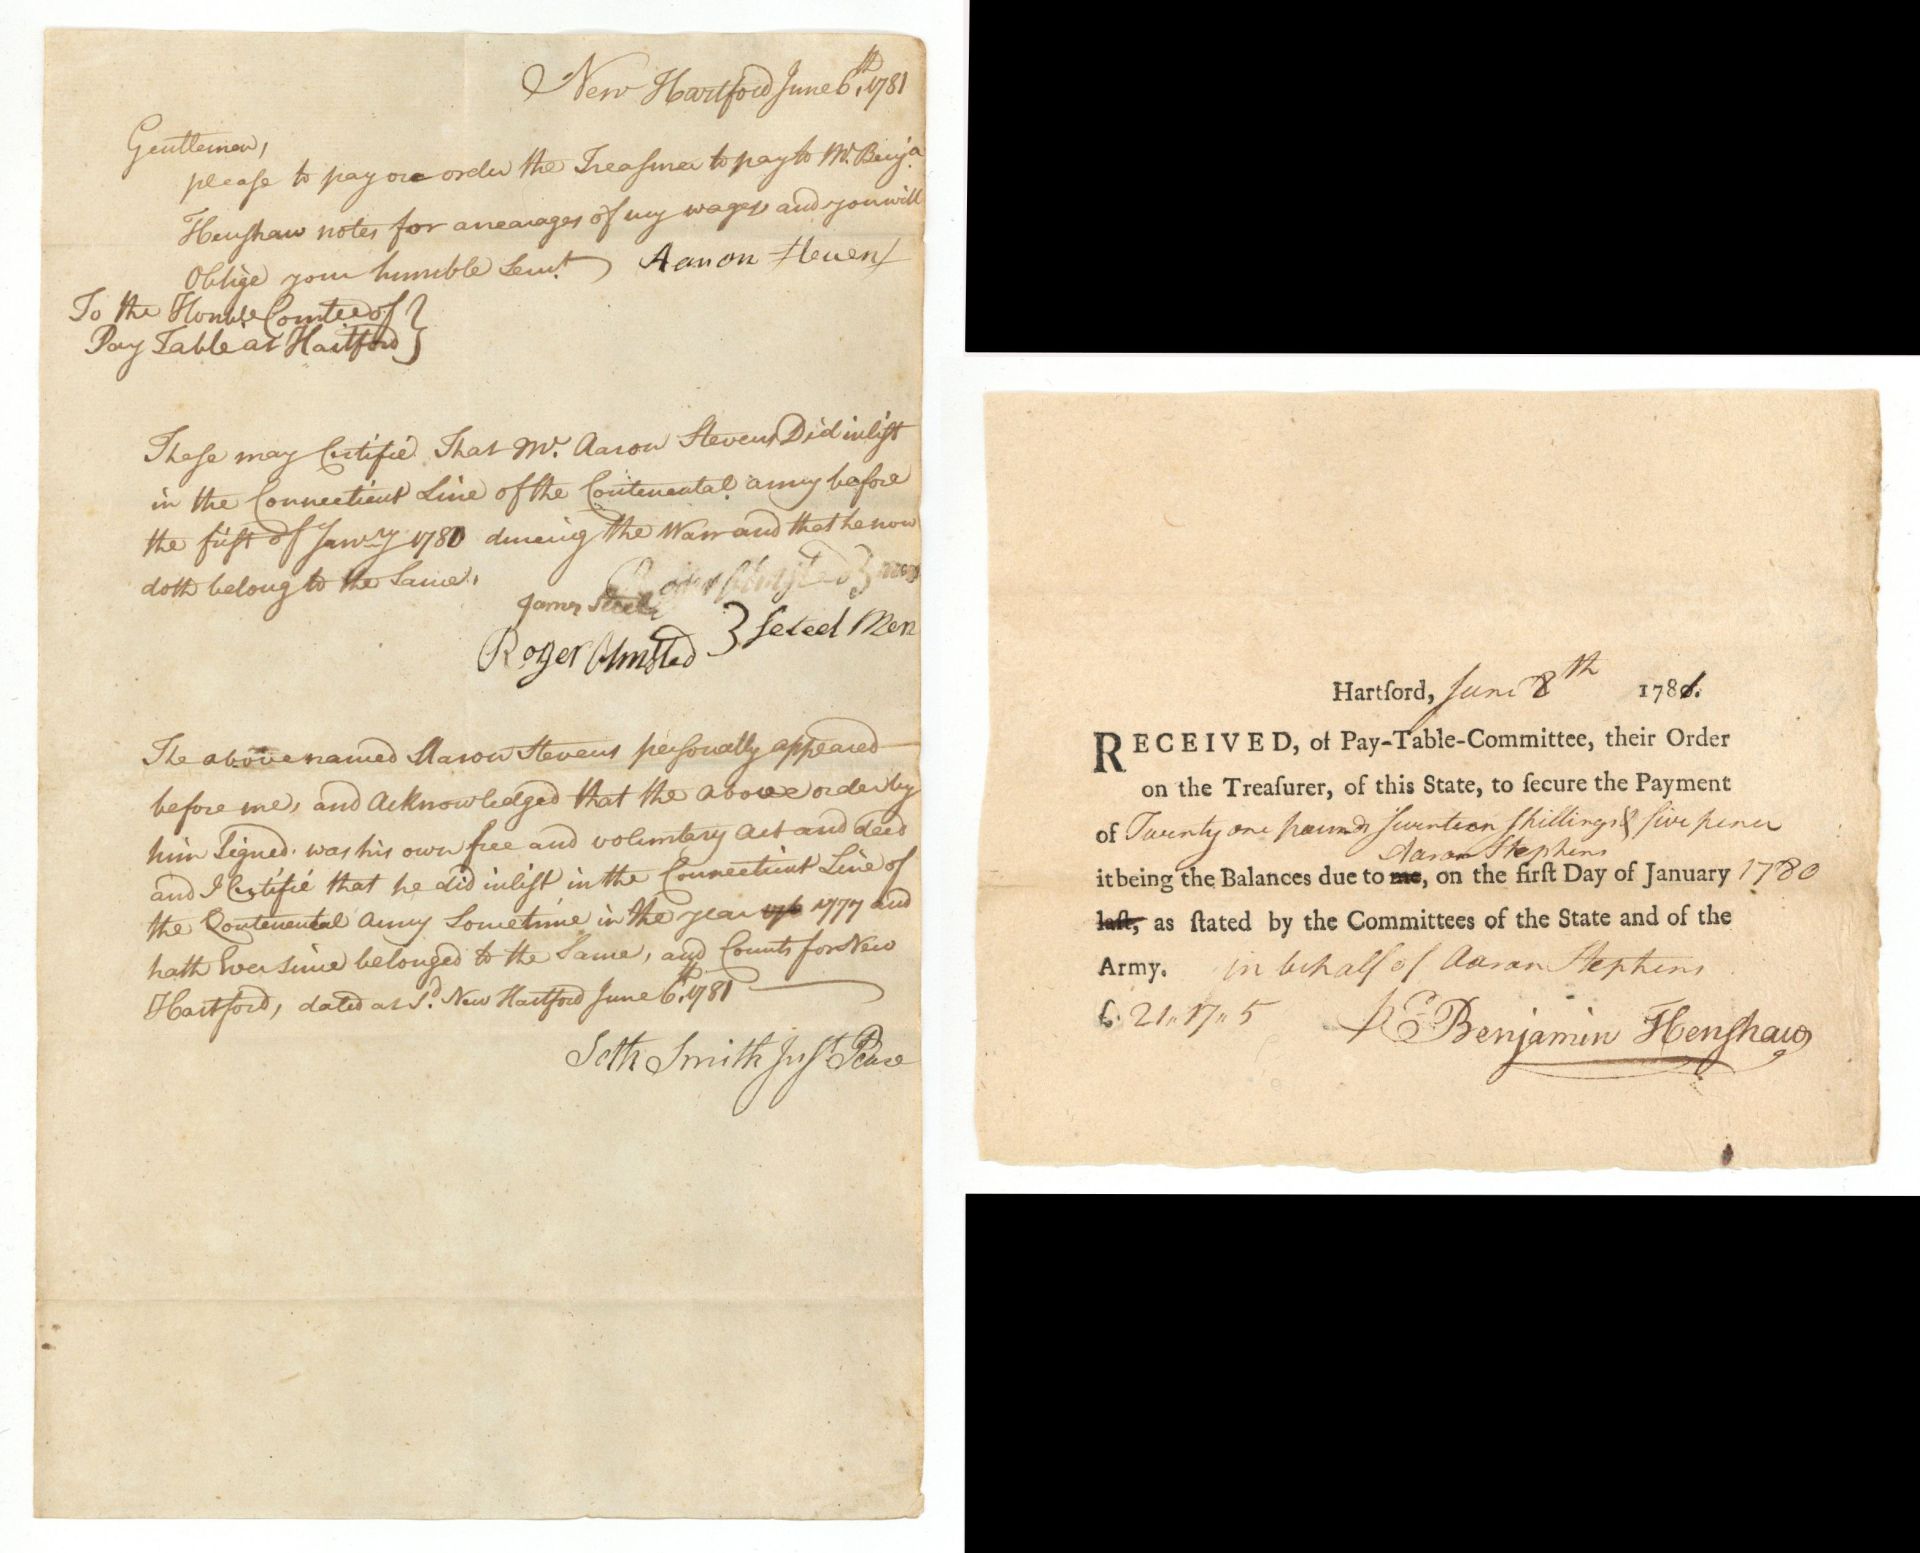 New Hartford June 6th, 1781
Gentlemen,
please to pay or order the Treasurer to pay to Mr. Benja.
Henshaw notes for arrearages of my wages and you will
Oblige your humble Servt. Aaron Steven
To the Honble Comtee of }
Pay Table at Hartford }
These may Certifie That Mr. Aaron Stevens Did inlist
in the Connecticut Line of the Contenental army before
the first of Janry 1780 during the Warr and that he now
doth belong to the Same.
Roger Olmsted }
James Steel
Roger Olmsted } Select Men
The above named Aaron Stevens personally appeared
before me, and Acknowledged that the above order by
him Signed. was his own free and voluntary Act and deed
and I Certifie that he did inlist in the Connecticut Line of
the Contenental Army Sometime in the year 1777 and
hath Ever Sinie belonged to the Same, and Counts for New
Hartford, dated at Sd. New Hartford June 6th, 1781
Seth Smith Just Peace
Hartford, June 8th 1781.
RECEIVED, of Pay-Table-Committee, their Order
on the Treaſurer, of this State, to ſecure the Payment
of Twenty one pounds Seventeen Shillings & five pence
Aaron Stephens
it being the Balances due to me, on the firſt Day of January 1780
laſt, as ſtated by the Committees of the State and of the
Army. in behalf of Aaron Stephens
£. 21,, 17,, 5 Benjamin Henshaw